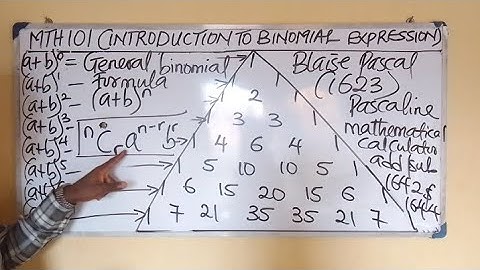 MTH101 (INTRODUCTION TO BINOMIAL EXPRESSION)
(a+b)⁰ = General binomial
(a+b)¹ – Formula
(a+b)² – (a+b)ⁿ
(a+b)³ –
ⁿCᵣ aⁿ⁻ʳ bʳ
(a+b)⁴
(a+b)⁵ –
1
1 1
1 2 1
1 3 3 1
1 4 6 4 1
1 5 10 10 5 1
1 6 15 20 15 6 1
1 7 21 35 35 21 7 1
Blaise Pascal
(1623)
Pascaline
mathematical
calculator
add sub
1642 &
1644